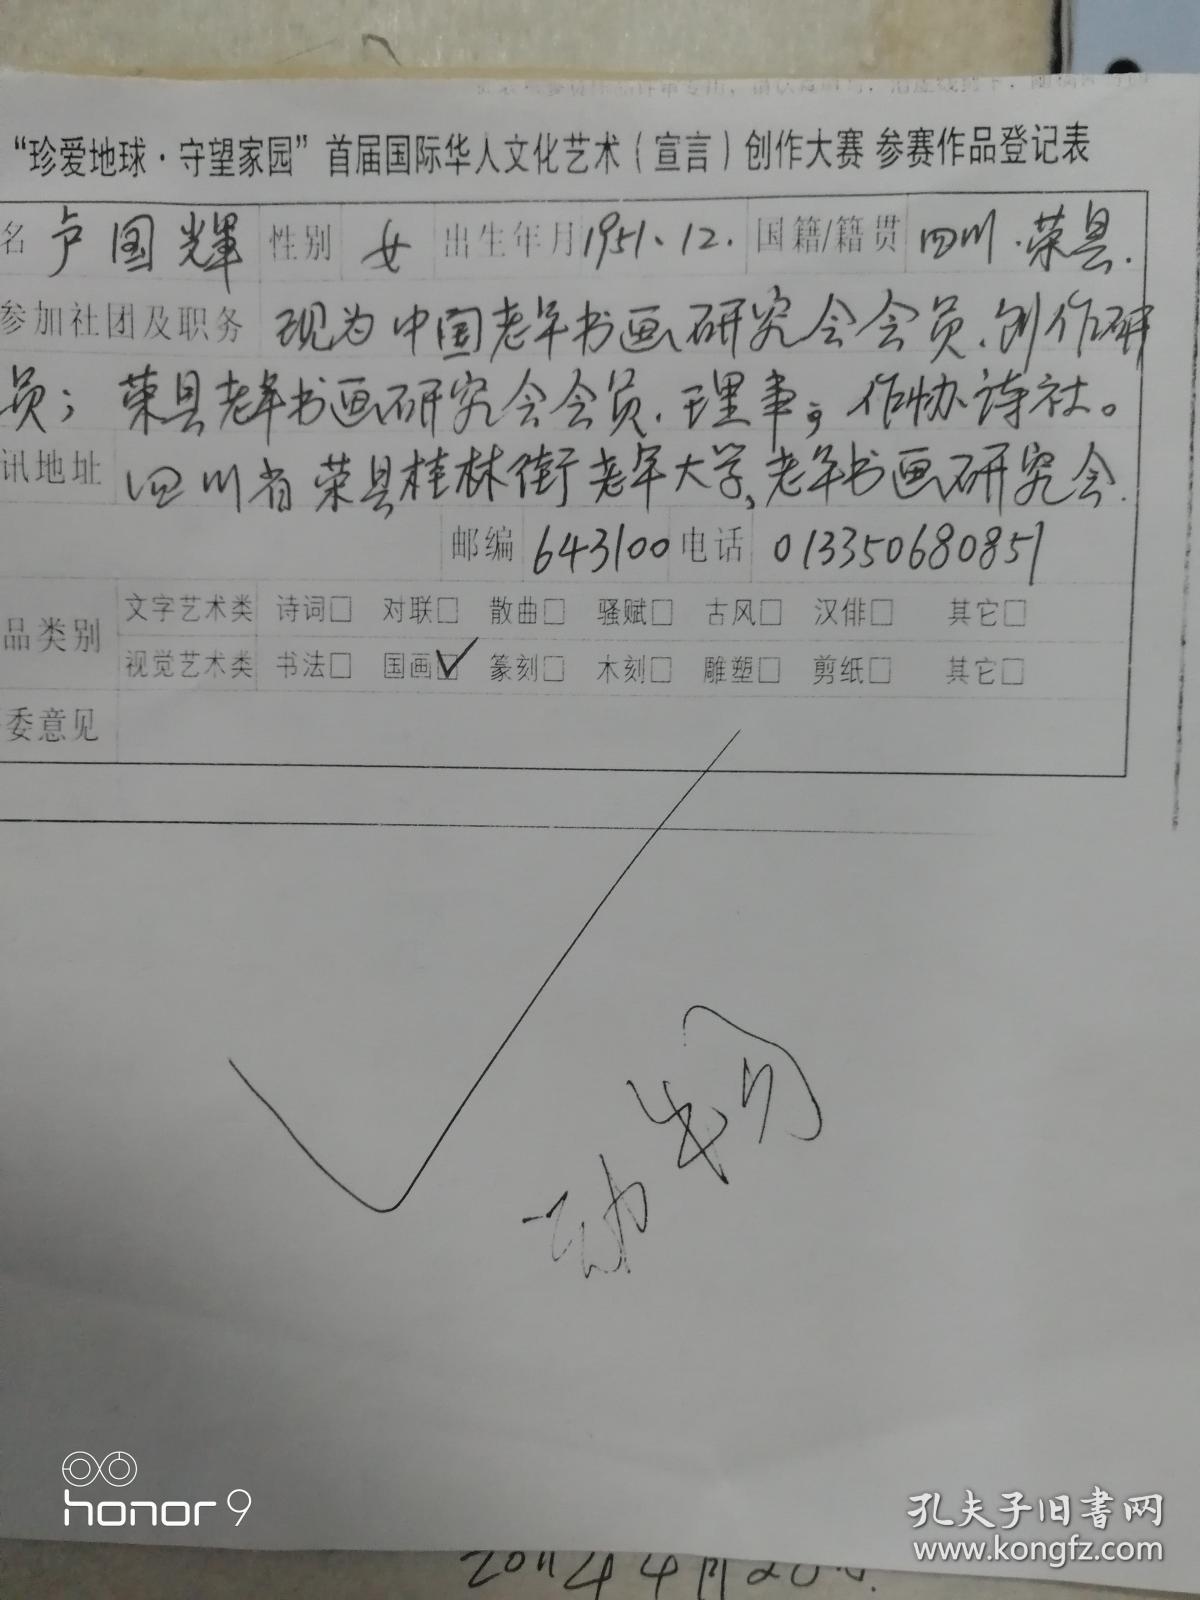 “珍爱地球·守望家园”首届国际华人文化艺术（宣言）创作大赛 参赛作品登记表
名 卢国辉 性别 女 出生年月 1951.12. 国籍/籍贯 四川.荣县.
参加社团及职务 现为中国老年书画研究会会员.创作研
员；荣县老年书画研究会会员.理事；作协诗社。
讯地址 四川省荣县桂林街老年大学、老年书画研究会.
邮编 643100 电话 013350680851
品类别 文字艺术类 诗词□ 对联□ 散曲□ 骚赋□ 古风□ 汉俳□ 其它□
视觉艺术类 书法□ 国画☑ 篆刻□ 木刻□ 雕塑□ 剪纸□ 其它□
委意见
honor 9
孔夫子旧书网
www.kongfz.com
2011年4月20日.